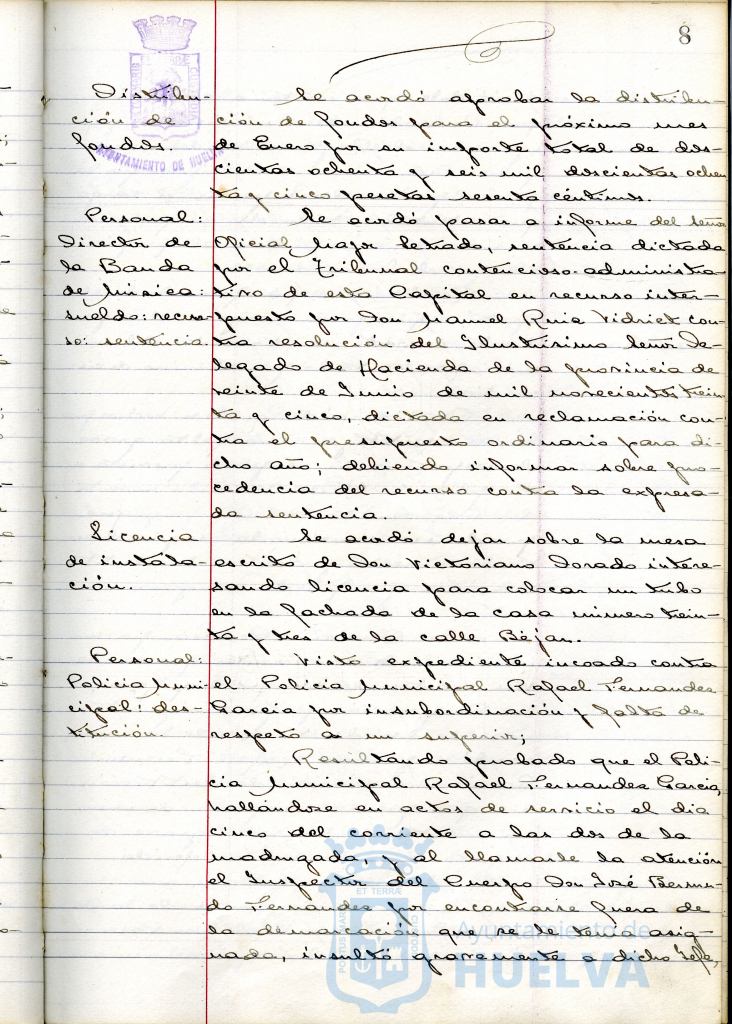 8
AYUNTAMIENTO DE HUELVA
Distribu-
ción de
fondos.
Se acordó aprobar la distribu-
ción de fondos para el próximo mes
de Enero por su importe total de dos-
cientas ochenta y seis mil doscientas ochen
ta y cinco pesetas sesenta céntimos.
Personal:
Director de
la Banda
de Música:
sueldo: recur-
so: sentencia.
Se acordó pasar a informe del señor
Oficial Mayor Letrado, sentencia dictada
por el Tribunal contencioso-administra-
tivo de esta Capital en recurso inter-
puesto por Don Manuel Ruiz Vidriet con-
tra resolución del Ilustrísimo Señor De-
legado de Hacienda de la provincia de
veinte de Junio de mil novecientos trein
ta y cinco, dictada en reclamación con-
tra el presupuesto ordinario para di-
cho año; debiendo informar sobre pro-
cedencia del recurso contra la expresa-
da sentencia.
Licencia
de instala-
ción.
Se acordó dejar sobre la mesa
escrito de Don Victoriano Dorado intere-
sando licencia para colocar un tubo
en la fachada de la casa número trein-
ta y tres de la calle Béjar.
Personal:
Policía Muni-
cipal: des-
titución.
Visto expediente incoado contra
el Policía Municipal Rafael Fernandez
Garcia por insubordinación y falta de
respeto a un superior;
Resultando probado que el Poli-
cia Municipal Rafael Fernandez Garcia,
hallándose en actos de servicio el dia
cinco del corriente a las dos de la
madrugada, y al llamarle la atención
el Inspector del Cuerpo Don José Bermu-
do Fernandez por encontrarse fuera de
la demarcación que se le tenia asig-
nada, insultó gravemente a dicho Jefe,
Ayuntamiento de
HUELVA